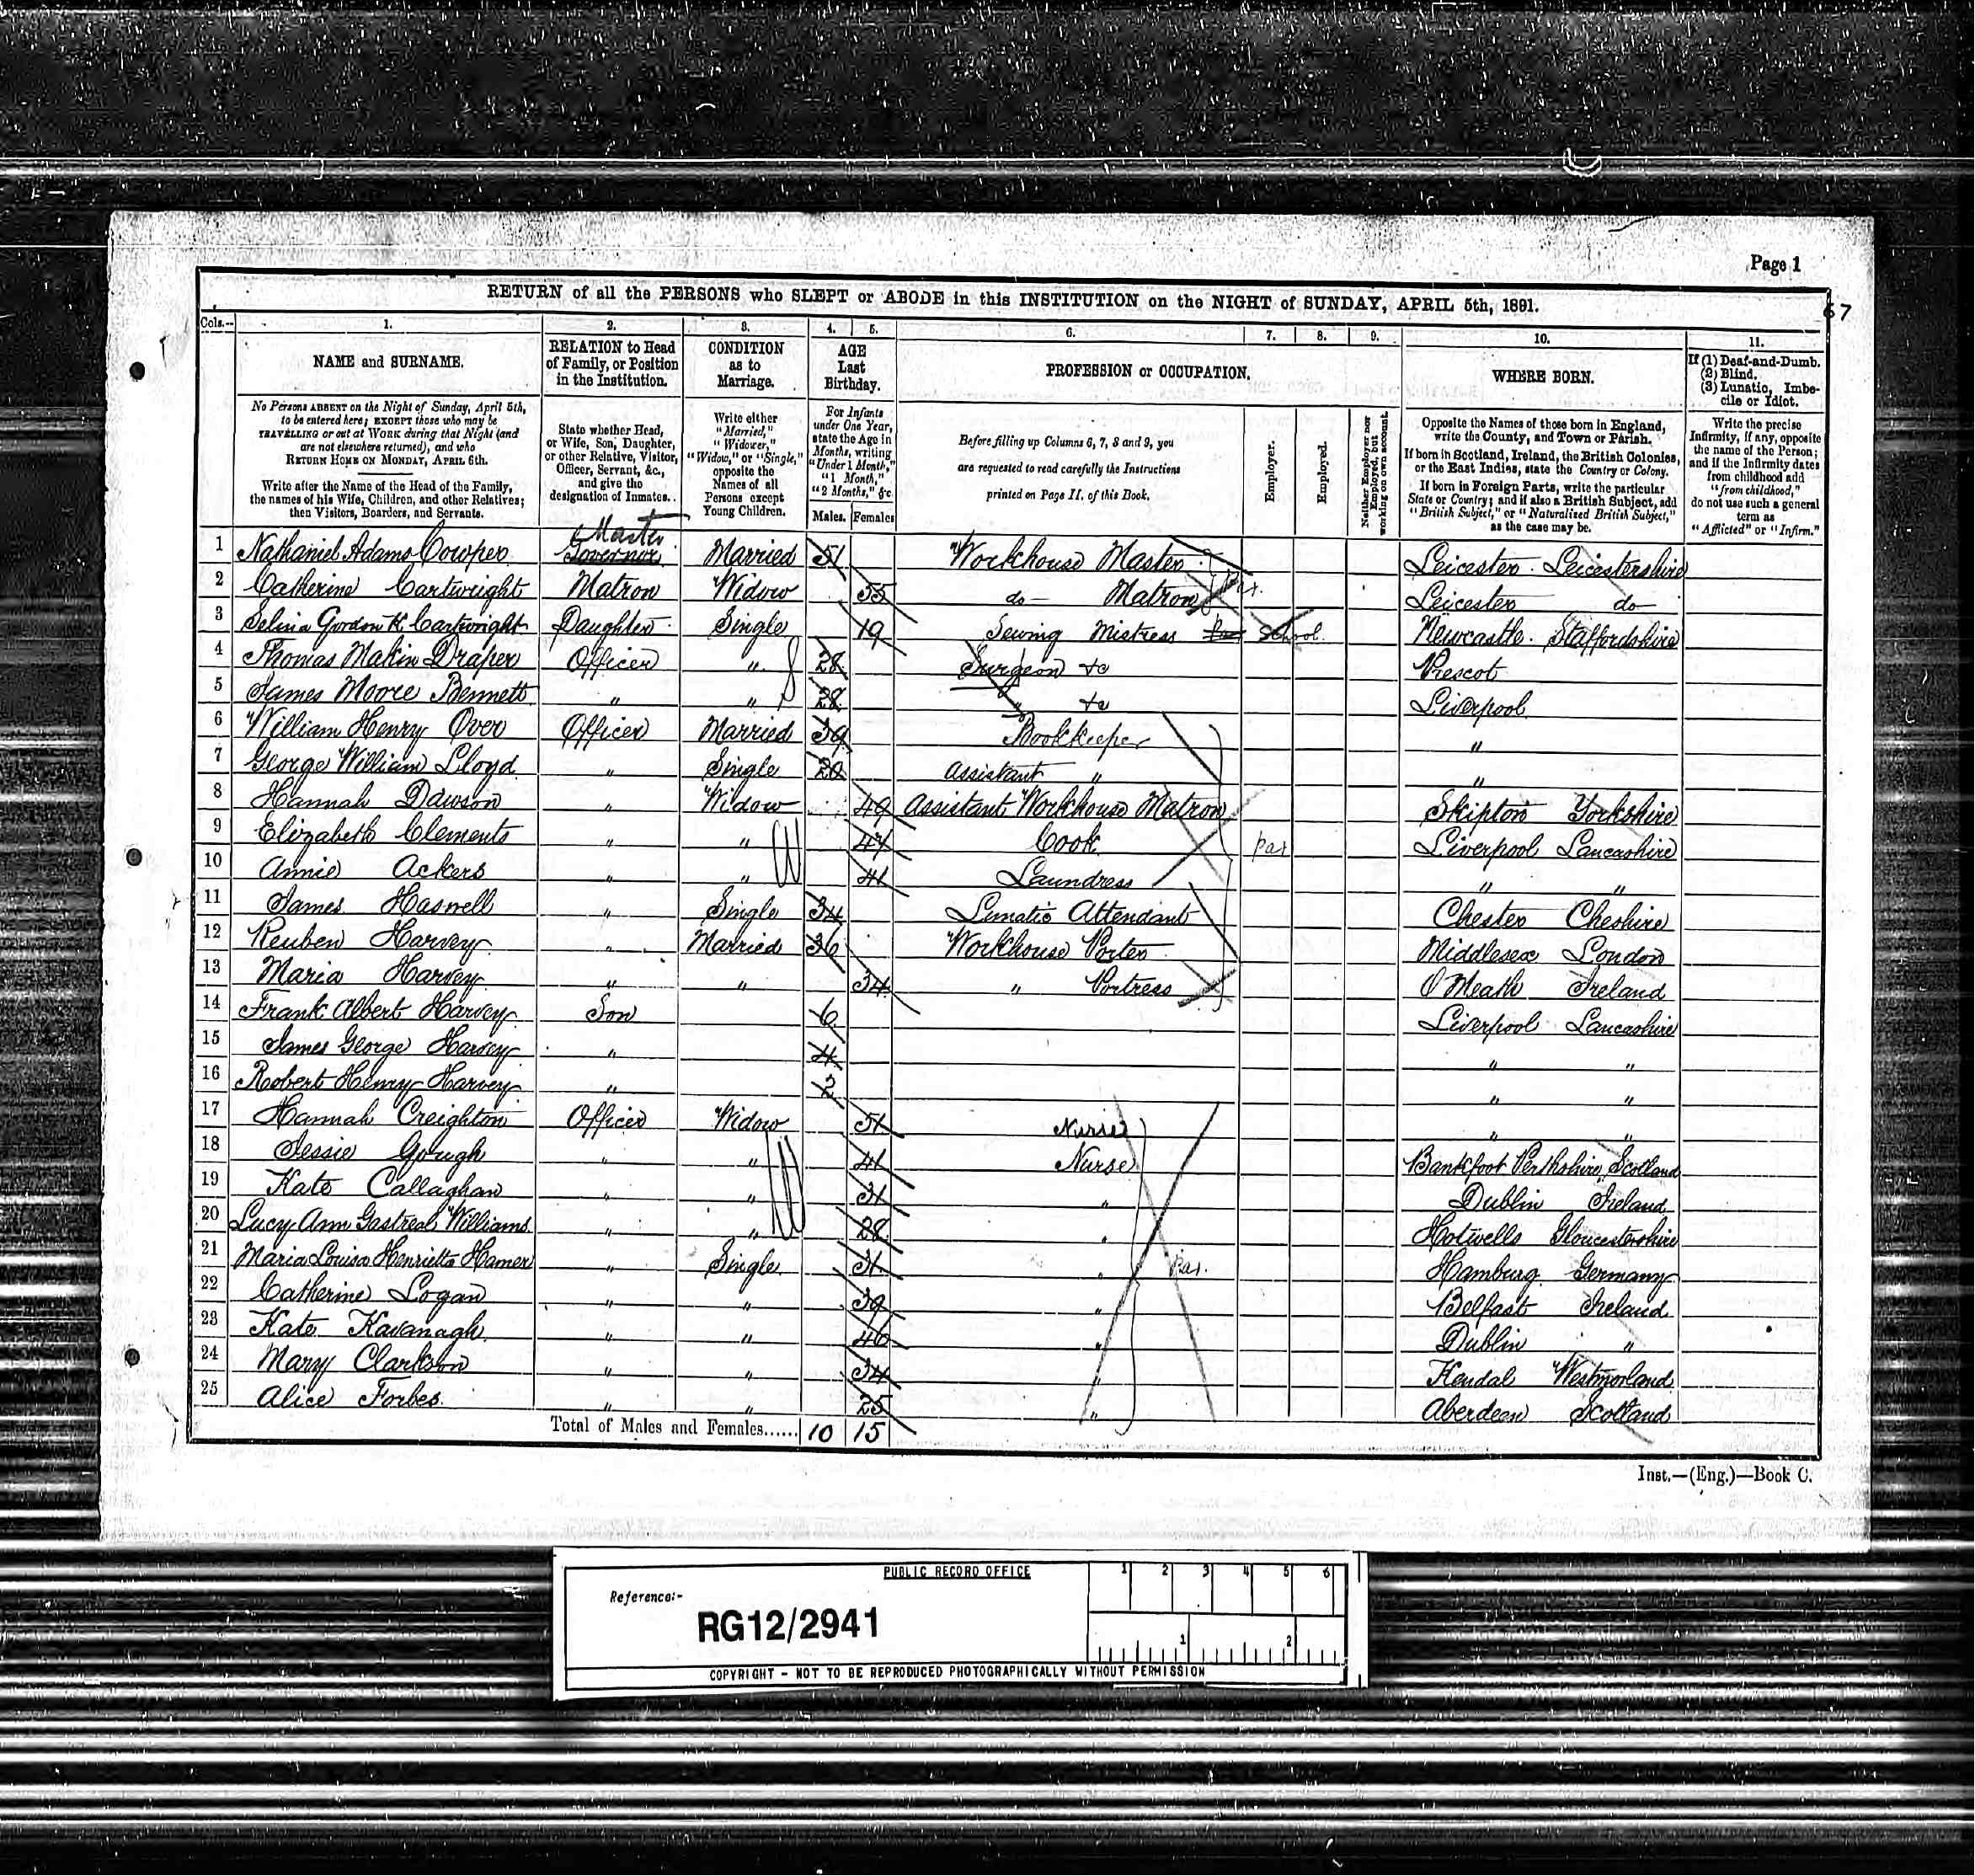 Page 1
67
RETURN of all the PERSONS who SLEPT or ABODE in this INSTITUTION on the NIGHT of SUNDAY, APRIL 5th, 1891.
Cols.— 1. 2. 3. 4. 5. 6. 7. 8. 9. 10. 11.
NAME and SURNAME.
No Persons ABSENT on the Night of Sunday, April 5th,
to be entered here; EXCEPT those who may be
TRAVELLING or out at WORK during that Night (and
are not elsewhere returned), and who
RETURN HOME ON MONDAY, APRIL 6th.
Write after the Name of the Head of the Family,
the names of his Wife, Children, and other Relatives;
then Visitors, Boarders, and Servants.
RELATION to Head
of Family, or Position
in the Institution.
State whether Head,
or Wife, Son, Daughter,
or other Relative, Visitor,
Officer, Servant, &c.,
and give the
designation of Inmates.
CONDITION
as to
Marriage.
Write either
"Married,"
"Widower,"
"Widow," or "Single,"
opposite the
Names of all
Persons except
Young Children.
AGE
Last
Birthday.
For Infants
under One Year,
state the Age in
Months, writing
"Under 1 Month,"
"1 Month,"
"2 Months," &c.
Males. Females
PROFESSION or OCCUPATION.
Before filling up Columns 6, 7, 8 and 9, you
are requested to read carefully the Instructions
printed on Page II. of this Book.
Employer.
Employed.
Neither Employer nor
Employed, but
working on own account.
WHERE BORN.
Opposite the Names of those born in England,
write the County, and Town or Parish.
If born in Scotland, Ireland, the British Colonies,
or the East Indies, state the Country or Colony.
If born in Foreign Parts, write the particular
State or Country; and if also a British Subject, add
"British Subject," or "Naturalized British Subject,"
as the case may be.
If (1) Deaf-and-Dumb.
(2) Blind.
(3) Lunatic, Imbe-
cile or Idiot.
Write the precise
Infirmity, if any, opposite
the name of the Person;
and if the Infirmity dates
from childhood add
"from childhood,"
do not use such a general
term as
"Afflicted" or "Infirm."
Master
1 Nathaniel Adams Cowper Governor Married 51 Workhouse Master Leicester Leicestershire
2 Catherine Cartwright Matron Widow 55 do Matron Leicester do
3 Selina Gordon K Cartwright Daughter Single 19 Sewing Mistress School Newcastle Staffordshire
4 Thomas Makin Draper Officer " 28 Surgeon &c Prescot
5 James Moore Bennett " " 28 " &c Liverpool
6 William Henry Over Officer Married 39 Bookkeeper "
7 George William Lloyd " Single 20 Assistant " "
8 Hannah Dawson " Widow 49 Assistant Workhouse Matron Skipton Yorkshire
9 Elizabeth Clements " " 47 Cook Par Liverpool Lancashire
10 Annie Ackers " " 41 Laundress " "
11 James Haswell " Single 34 Lunatic Attendant Chester Cheshire
12 Reuben Harvey " Married 36 Workhouse Porter Middlesex London
13 Maria Harvey " " 34 " Portress O Meath Ireland
14 Frank Albert Harvey Son 6 Liverpool Lancashire
15 James George Harvey " 4 " "
16 Robert Henry Harvey " 2 " "
17 Hannah Creighton Officer Widow 51 Nurse " "
18 Jessie Gough " " 41 Nurse Bankfoot Perthshire, Scotland
19 Kate Callaghan " " 31 " Dublin Ireland
20 Lucy Ann Gastreal Williams " " 28 " Hotwells Gloucestershire
21 Maria Louisa Henrietta Hamer " Single 31 " Par. Hamburg Germany
22 Catherine Logan " " 39 " Belfast Ireland
23 Kate Kavanagh " " 46 " Dublin "
24 Mary Clarkson " " 34 " Kendal Westmorland
25 Alice Forbes " " 25 " Aberdeen Scotland
Total of Males and Females...... 10 15
Inst.—(Eng.)—Book C.
PUBLIC RECORD OFFICE
1 2 3 4 5 6
Reference:-
RG12/2941
1 2
COPYRIGHT - NOT TO BE REPRODUCED PHOTOGRAPHICALLY WITHOUT PERMISSION